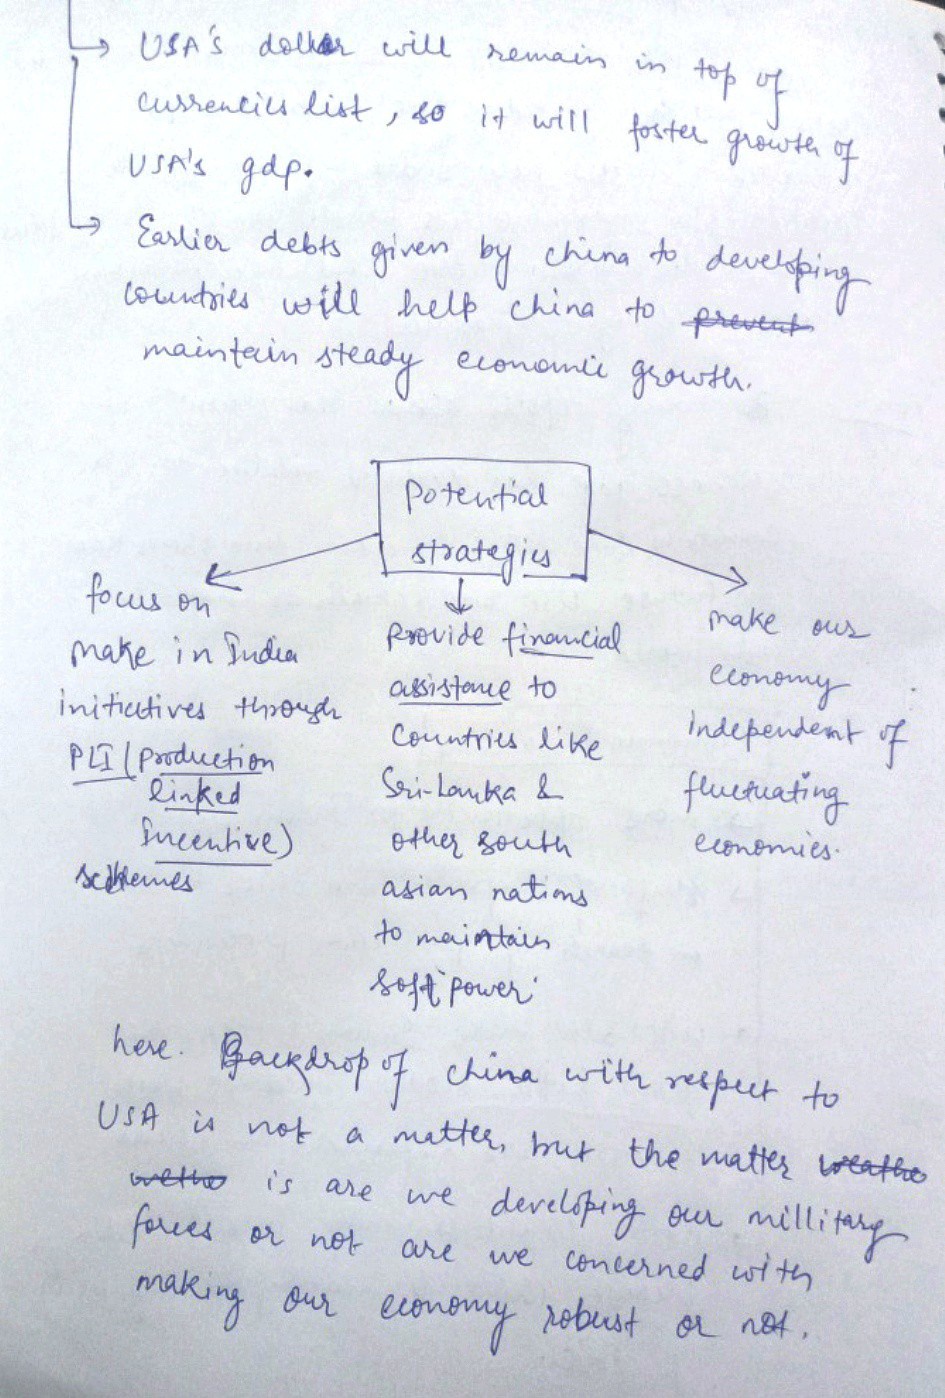 USA's dollar will remain in top of
currencies list, so it will foster growth of
USA's gdp.
Earlier debts given by china to developing
countries will help china to prevent
maintain steady economic growth.
Potential
strategies
focus on
make in India
initiatives through
PLI (Production
linked
Incentive)
schemes
Provide financial
assistance to
Countries like
Sri-Lanka &
other south
asian nations
to maintain
soft power.
make our
economy
independent of
fluctuating
economies.
here. Backdrop of china with respect to
USA is not a matter, but the matter
is are we developing our millitary
forces or not are we concerned with
making our economy robust or not.